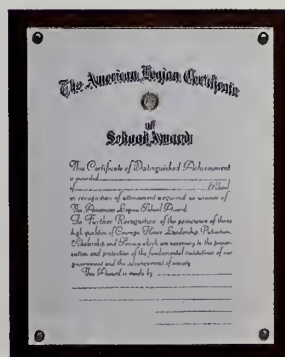 The American Legion Certificate
of
School Award
This Certificate of Distinguished Achievement
is awarded
of School
in recognition of attainment acquired as winner of
The American Legion School Award.
In Further Recognition of the possession of those
high qualities of Courage Honor Leadership Patriotism
Scholarship and Service which are necessary to the preser-
vation and protection of the fundamental institutions of our
government and the advancement of society
This Award is made by